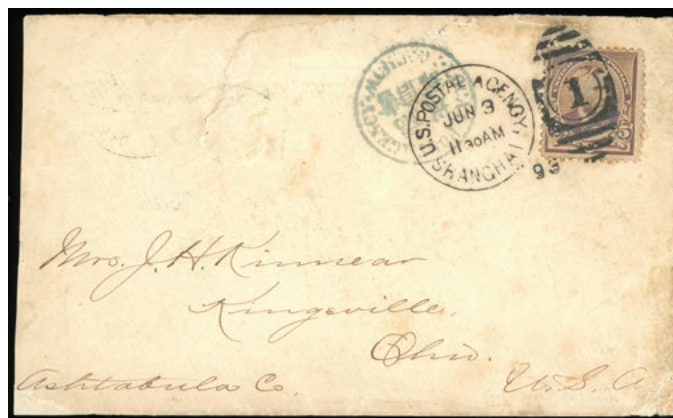 U.S. POSTAL AGENCY.
JUN 3
11 30AM
SHANGHAI
1
Mrs. J. H. Kinnear
Kingsville.
Ohio.
Ashtabula Co.
U. S. A.